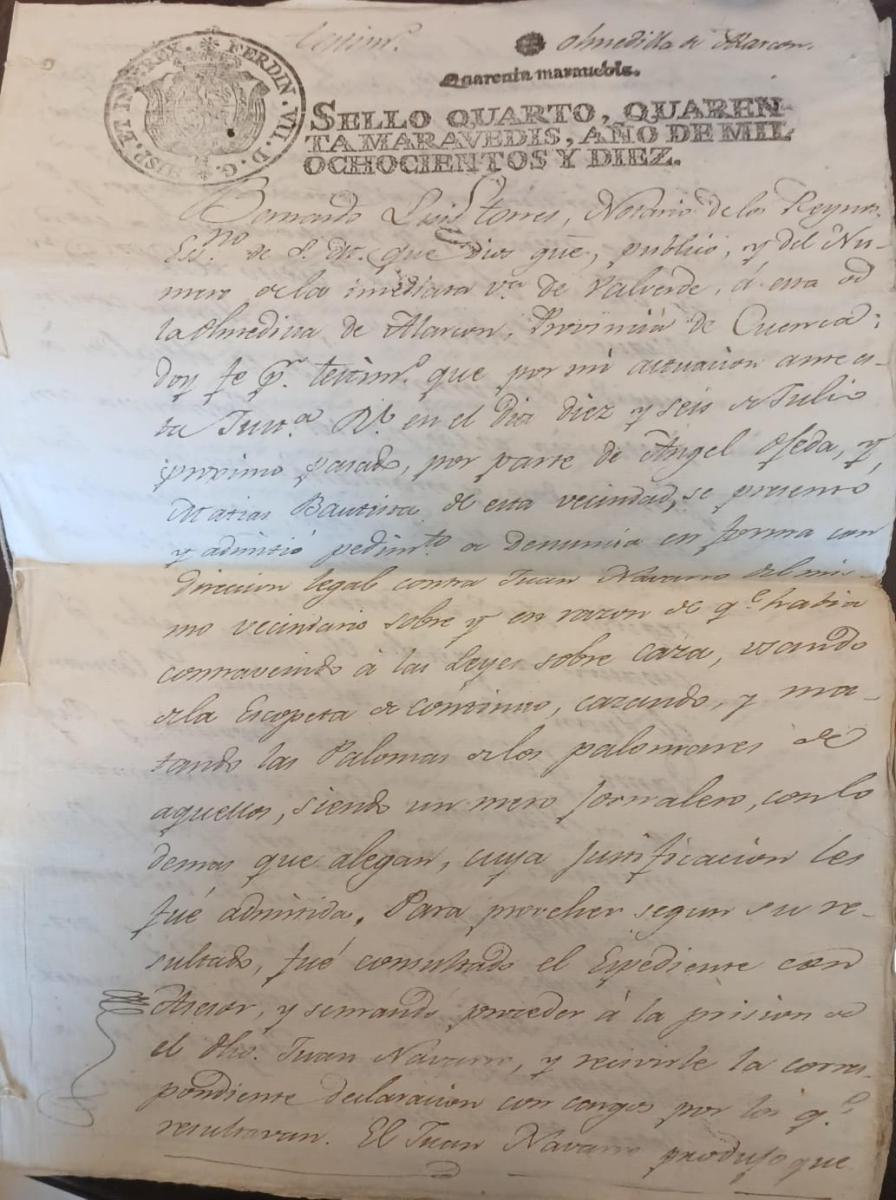 testimº. Olmedilla de Alarcon.
Quarenta maravedis.
HISP. ET IND. REX. FERDIN. VII. D. G.
SELLO QUARTO, QUAREN
TA MARAVEDIS, AÑO DE MIL
OCHOCIENTOS Y DIEZ.
Bernardo Luis Torres, Notario de los Reynos
Essnº de S. M. que Dios gue, publico, y del Nu-
mero de la imediata va. de Valverde, á esta de
la Olmedilla de Alarcon, Provincia de Cuenca:
doy fe pr. testimº. que por mi actuacion ante es-
ta Justª. Rl. en el dia diez y seis de Julio
proximo pasado, por parte de Angel Oseda, y
Matias Bautista de esta vecindad, se presentó
y admitió pedimto. a denuncia en forma con
direccion legal contra Juan Navarro del mis-
mo vecindario sobre y en razon de qe. habia
contravenido á las Leyes sobre caza, usando
de la Escopeta de continuo, cazando, y ma-
tando las Palomas de los palomares de
aquellos, siendo un mero Jornalero, con lo
demas que alegan, cuya justificacion les
fué admitida. Para proveher segun su re-
sultado, fué consultado el Expediente con
Asesor, y se mandó proceder á la prision de
el dho. Juan Navarro, y recivirle la corres-
pondiente declaracion con cargos por los qe.
resultavan. El Juan Navarro produjo que